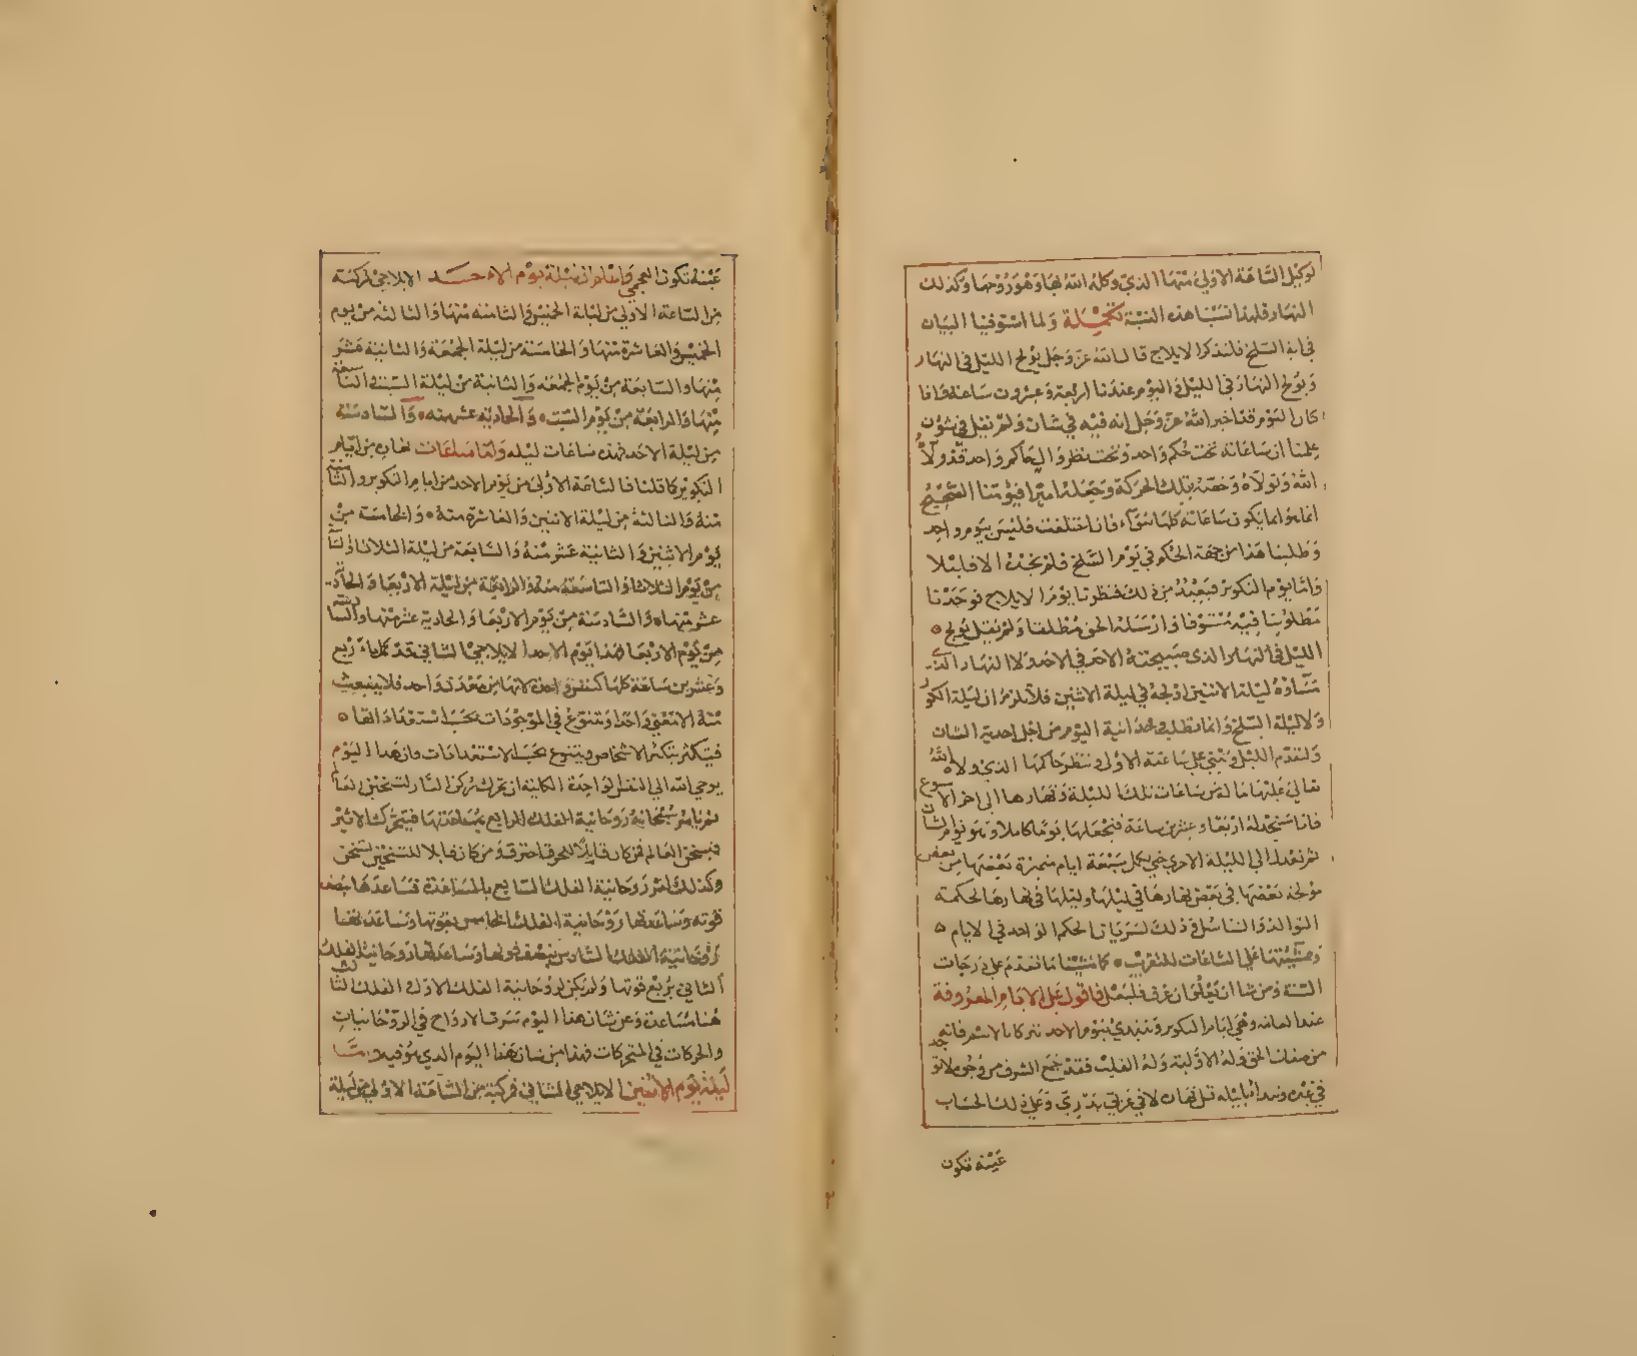 لوكيل الساعة الاولى منها الذي وكله الله بها وهو روحها وكذلك
النهار فلهذا نسبنا هذه النسبة تكميلة ولما استوفينا البيان
في ايام السلخ فلنذكر الايلاج قال الله عز وجل يولج الليل في النهار
ويولج النهار في الليل واليوم عندنا اربعة وعشرون ساعة واذا
كان اليوم قد اخبر الله عز وجل انه فيه في شان ولم يقل في شؤن
علمنا ان ساعاته تحت حكم واحد وتحت نظر والٍ حاكم واحد قد ولاه
الله وتولاه وخصه بتلك الحركة وجعله اميرا فيومنا الصحيح
انما هو انما يكون ساعاته كلها سواء فاذا اختلفت فليس بيوم واحد
وطلبنا هذا من جهة الحكم في يوم السلخ فلم نجده الا قليلا
واما يوم التكوير فبعيد من ذلك فنظرنا يوم الايلاج فوجدنا
مطلوبنا فيه مستوفا وارسله الحق مطلقا ولم يقل يولج
الليل في النهار الذي صبيحته الاحد في الاحد ولا النهار الذي
مساؤه ليلة الاثنين اولجه في ليلة الاثنين فلا يلزم ان ليلة الكور
ولا ليلة السلخ وانما نطلب وحدانية اليوم من اجل احدية الشان
ولنقدم الليل ونبني على ساعته الاولى وننظر حاكمها الذي ولاه الله
تعالى عليها ما له من ساعات تلك الليلة ونهارها الى اخر الاسبوع
فانا ستجد له اربعا وعشرين ساعة فنجعلها يوما كاملا وهو يوم الشان
ثم نعدل الى الليلة الاخرى حتى يكمل سبعة ايام متميزة بعضها من بعض
مولجة بعضها في بعض نهارها في ليلها وليلها في نهارها لحكمة
التوالد والتناسل وذلك لسريان الحكم الواحد في الايام
ومشيتها على الساعات للتقريب كما مشينا ما تقدم على درجات
السنة ومن شا ان يعلم ان عرف فليعمل فاقول على الايام المعروفة
عند العامة وهي ايام التكوير ونبتدئ بيوم الاحد تبركا بالاسم فانه
من صفات الحق وله الاولية وله القلب فقد جمع الشرف من وجوه لا توجد
في غيره ونبدأ بليله قبل نهاره لاني عربي بدري وعلى ذلك الحساب
عينه تكون
عينه تكون العجمي واعلم ان ليلة يوم الاحد الايلاجي مركبة
من الساعة الاولى من ليلة الخميس والثامنة منها والثالثة من يوم
الخميس والعاشرة منها والخامسة من ليلة الجمعة والثانية عشر
منها والسابعة من يوم الجمعة والثانية من ليلة السبت والتاسعة
منها والرابعة من يوم السبت والحادية عشر منه والسادسة
من ليلة الاحد فهذه ساعات ليله واما ساعات نهاره من ايام
التكوير كما قلنا فالساعة الاولى من يوم الاحد من ايام التكوير والثامنة
منه والثالثة من ليلة الاثنين والعاشرة منه والخامسة من
يوم الاثنين والثانية عشر منه والسابعة من ليلة الثلاثا والثانية
من يوم الثلاثا والتاسعة منه والرابعة من ليلة الاربعا والحادية
عشر منها والسادسة من يوم الاربعا
من يوم الاربعا فهذا يوم الاحد الايلاجي الشاني قد كمل باربع
وعشرين ساعة كلها كنفس واحدة لانها من معدن واحد فلا ينبعث
منه الا معنى واحدا وتتنوع في الموجودات بحسب استعداداتها
فيتكثر بتكثر الاشخاص ويتنوع بحسب الاستعدادات وان هذا اليوم
يوحي الله الى النفس الواحدة الكلية ان تحرك ركن النار لتسخين العالم
ثم يامر سبحانه روحانية الفلك الرابع بمساعدتها فيتحرك الاثير
فيسخن العالم فمن كان قابلا للحرق احترق ومن كان قابلا للتسخين تسخن
وكذلك امر روحانية الفلك السابع بالمساعدة فساعدها بنصف
قوته وساعدتها روحانية الفلك الخامس بقوتها وساعدتها
روحانية الفلك السادس بنصف قوتها وساعدتها روحانية الفلك
الثاني بربع قوتها ولم يكن لروحانية الفلك الاول الفلك الثالث
هنا مساعدة وعن شان هذا اليوم تسرق الارواح في الروحانيات
والحركات في المتحركات فهذا من شان هذا اليوم الذي هو فيه واما
ليلة يوم الاثنين الايلاجي الشاني فمركبة من الساعة الاولى من ليلة